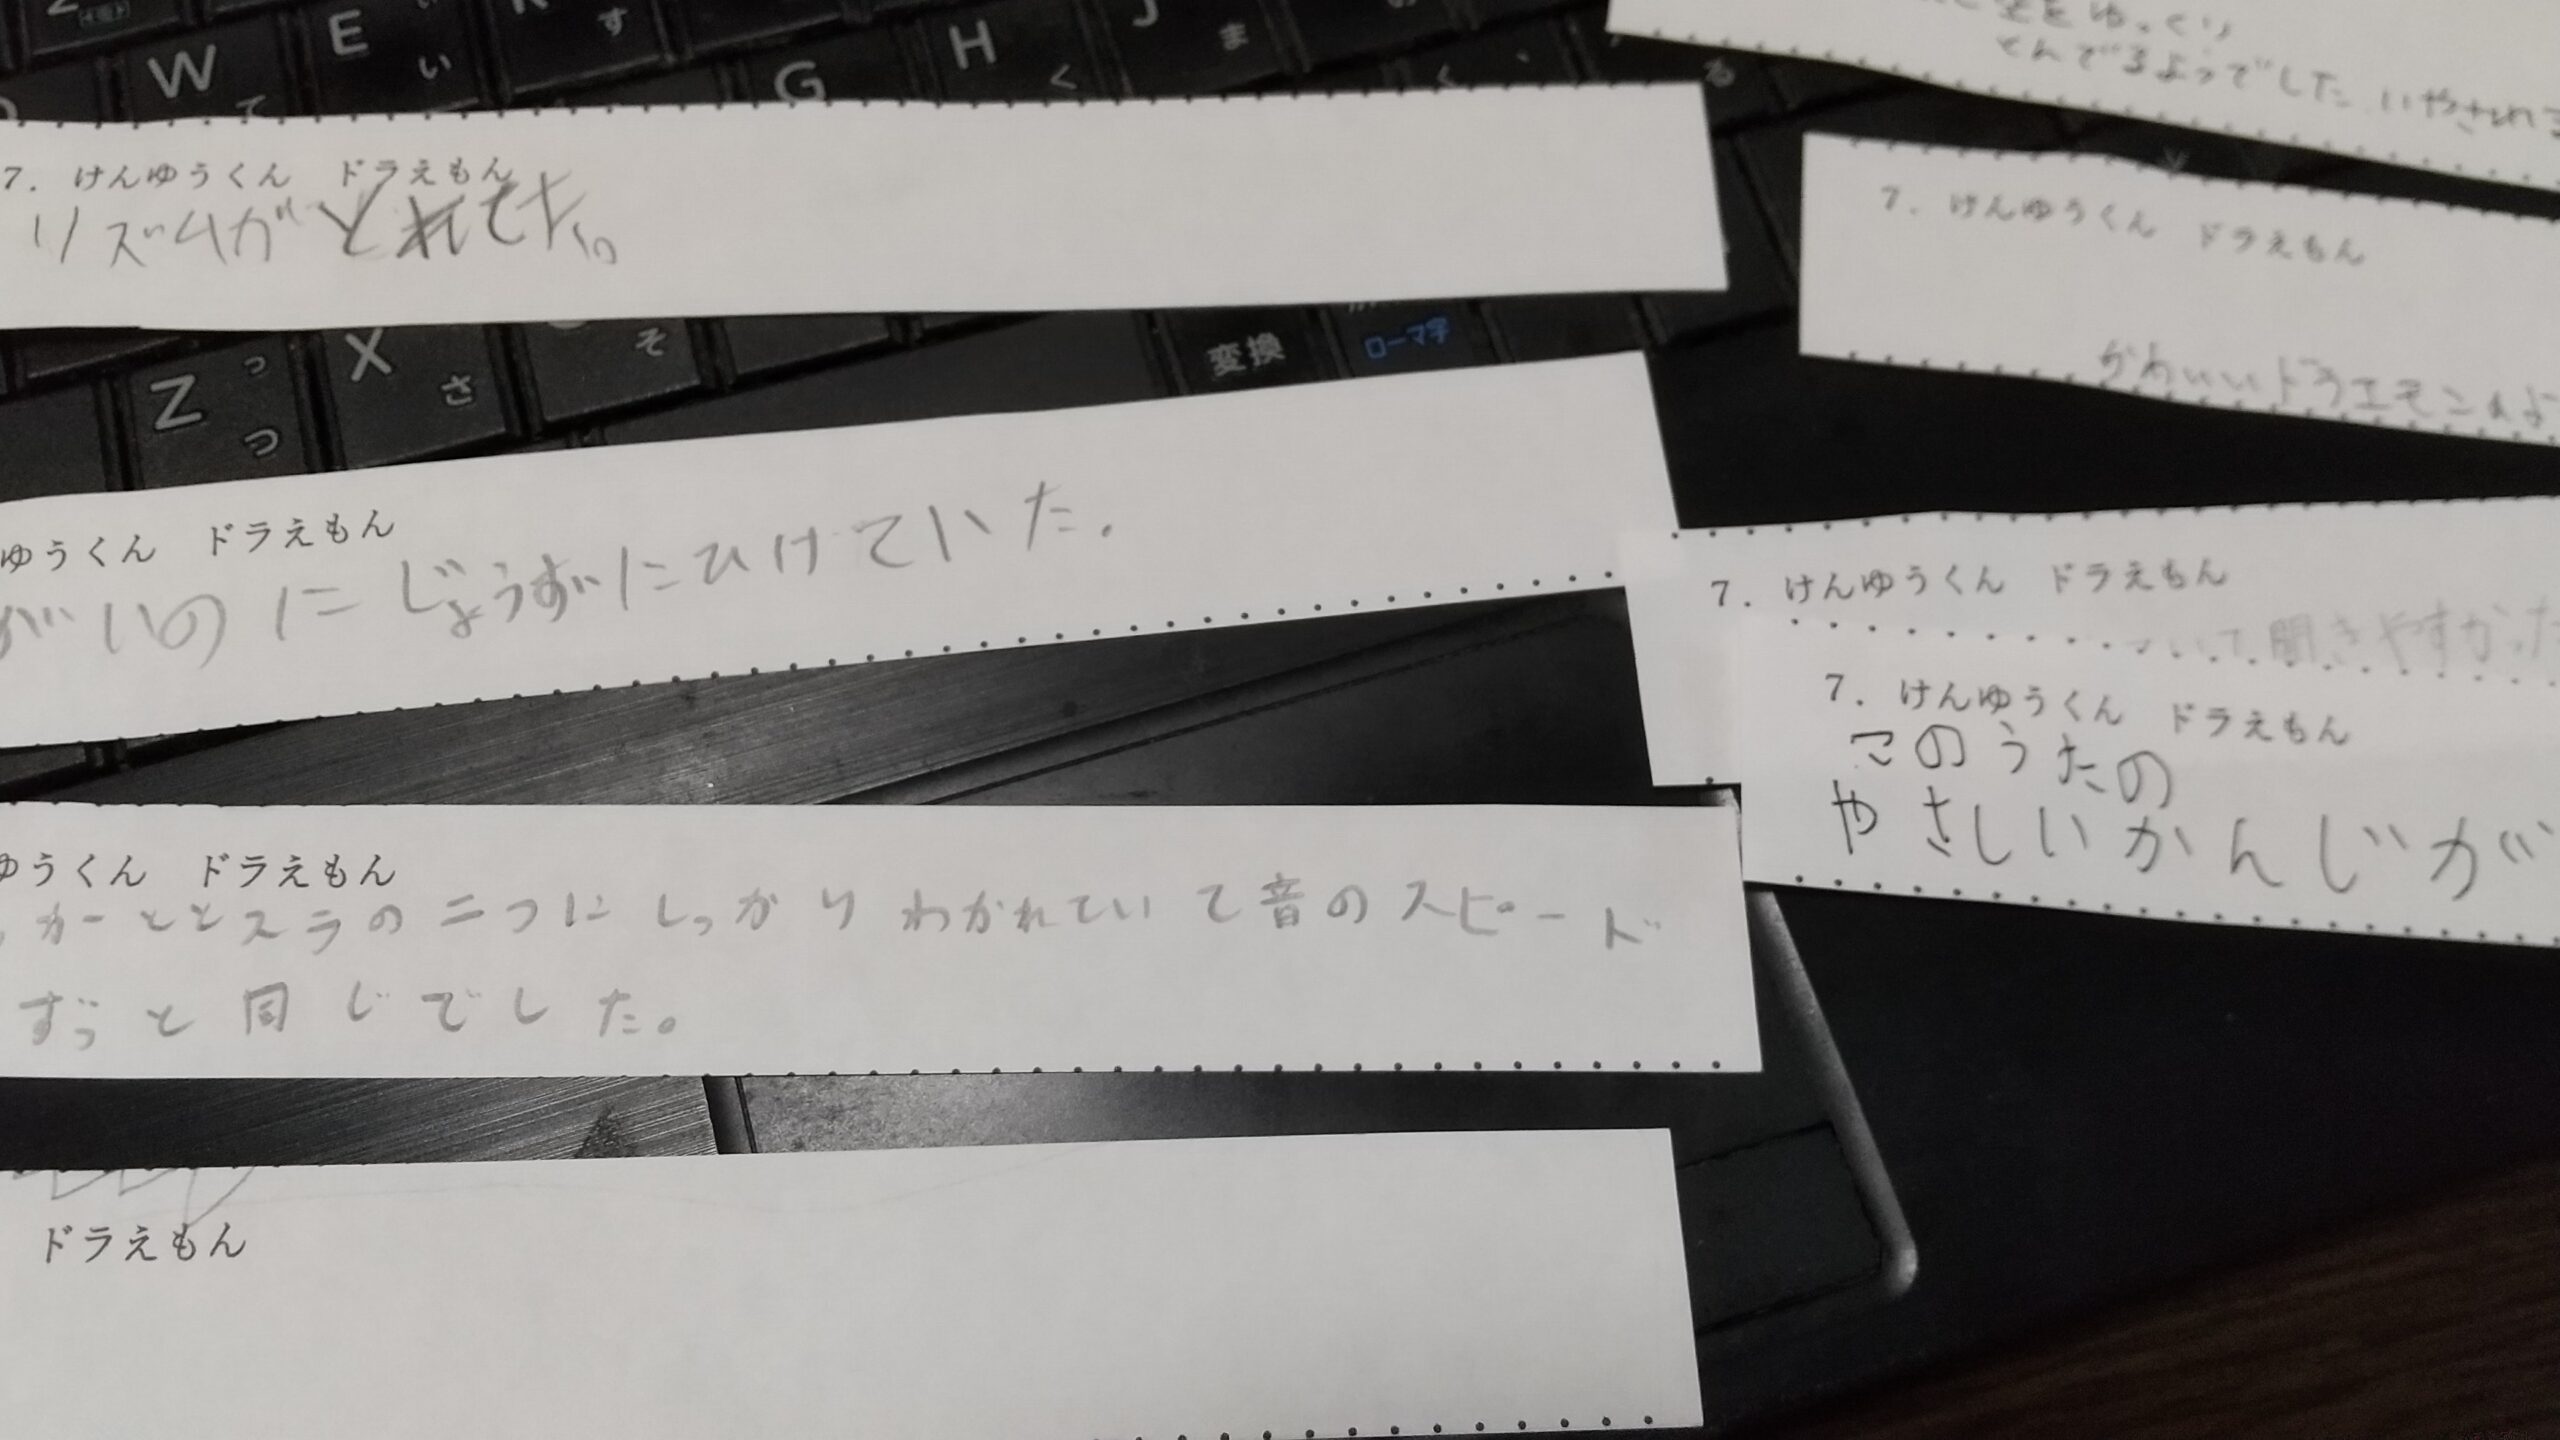 W
て
E
い
す
G
H
く
J
ま
Z
っ
つ
X
さ
そ
変換
ローマ字
7. けんゆうくん ドラえもん
リズムがとれてた。
ゆうくん ドラえもん
がいのに じょうずにひけていた.
ゆうくん ドラえもん
カーととスラの二つにしっかりわかれていて音のスピード
ずっと同じでした。
ドラえもん
をゆっくり
とんでるようでした いやされる
7. けんゆうくん ドラえもん
かわいいドラエモン
7. けんゆうくん ドラえもん
いて聞きやすかった
7. けんゆうくん ドラえもん
このうたの
やさしいかんじが